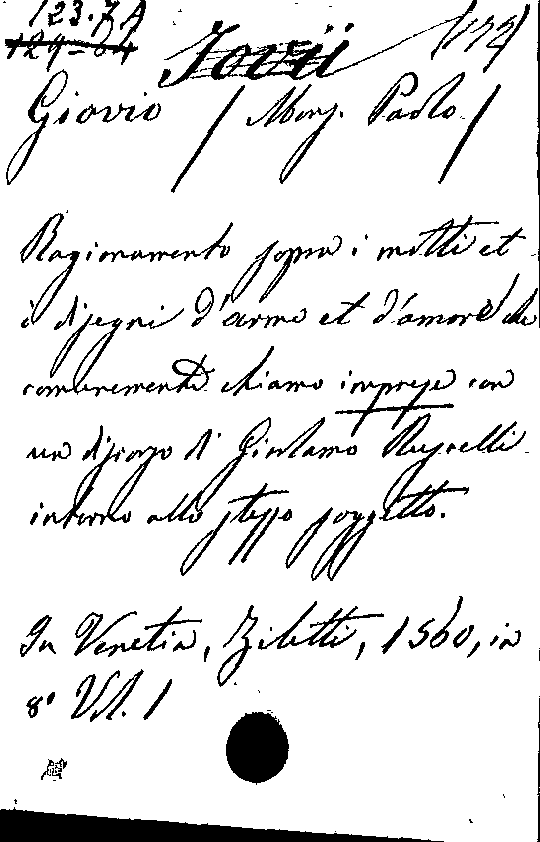 123.7.A
129-84
Jovii
(172)
Giovio / Mons. Paolo /
Ragionamento sopra i motti et
i disegni d'arme et d'amore che
comunemente chiamo imprese con
un discorso di Girolamo Ruscelli
intorno allo stesso soggetto.
In Venetia, Ziletti, 1560, in
8° Vol. 1